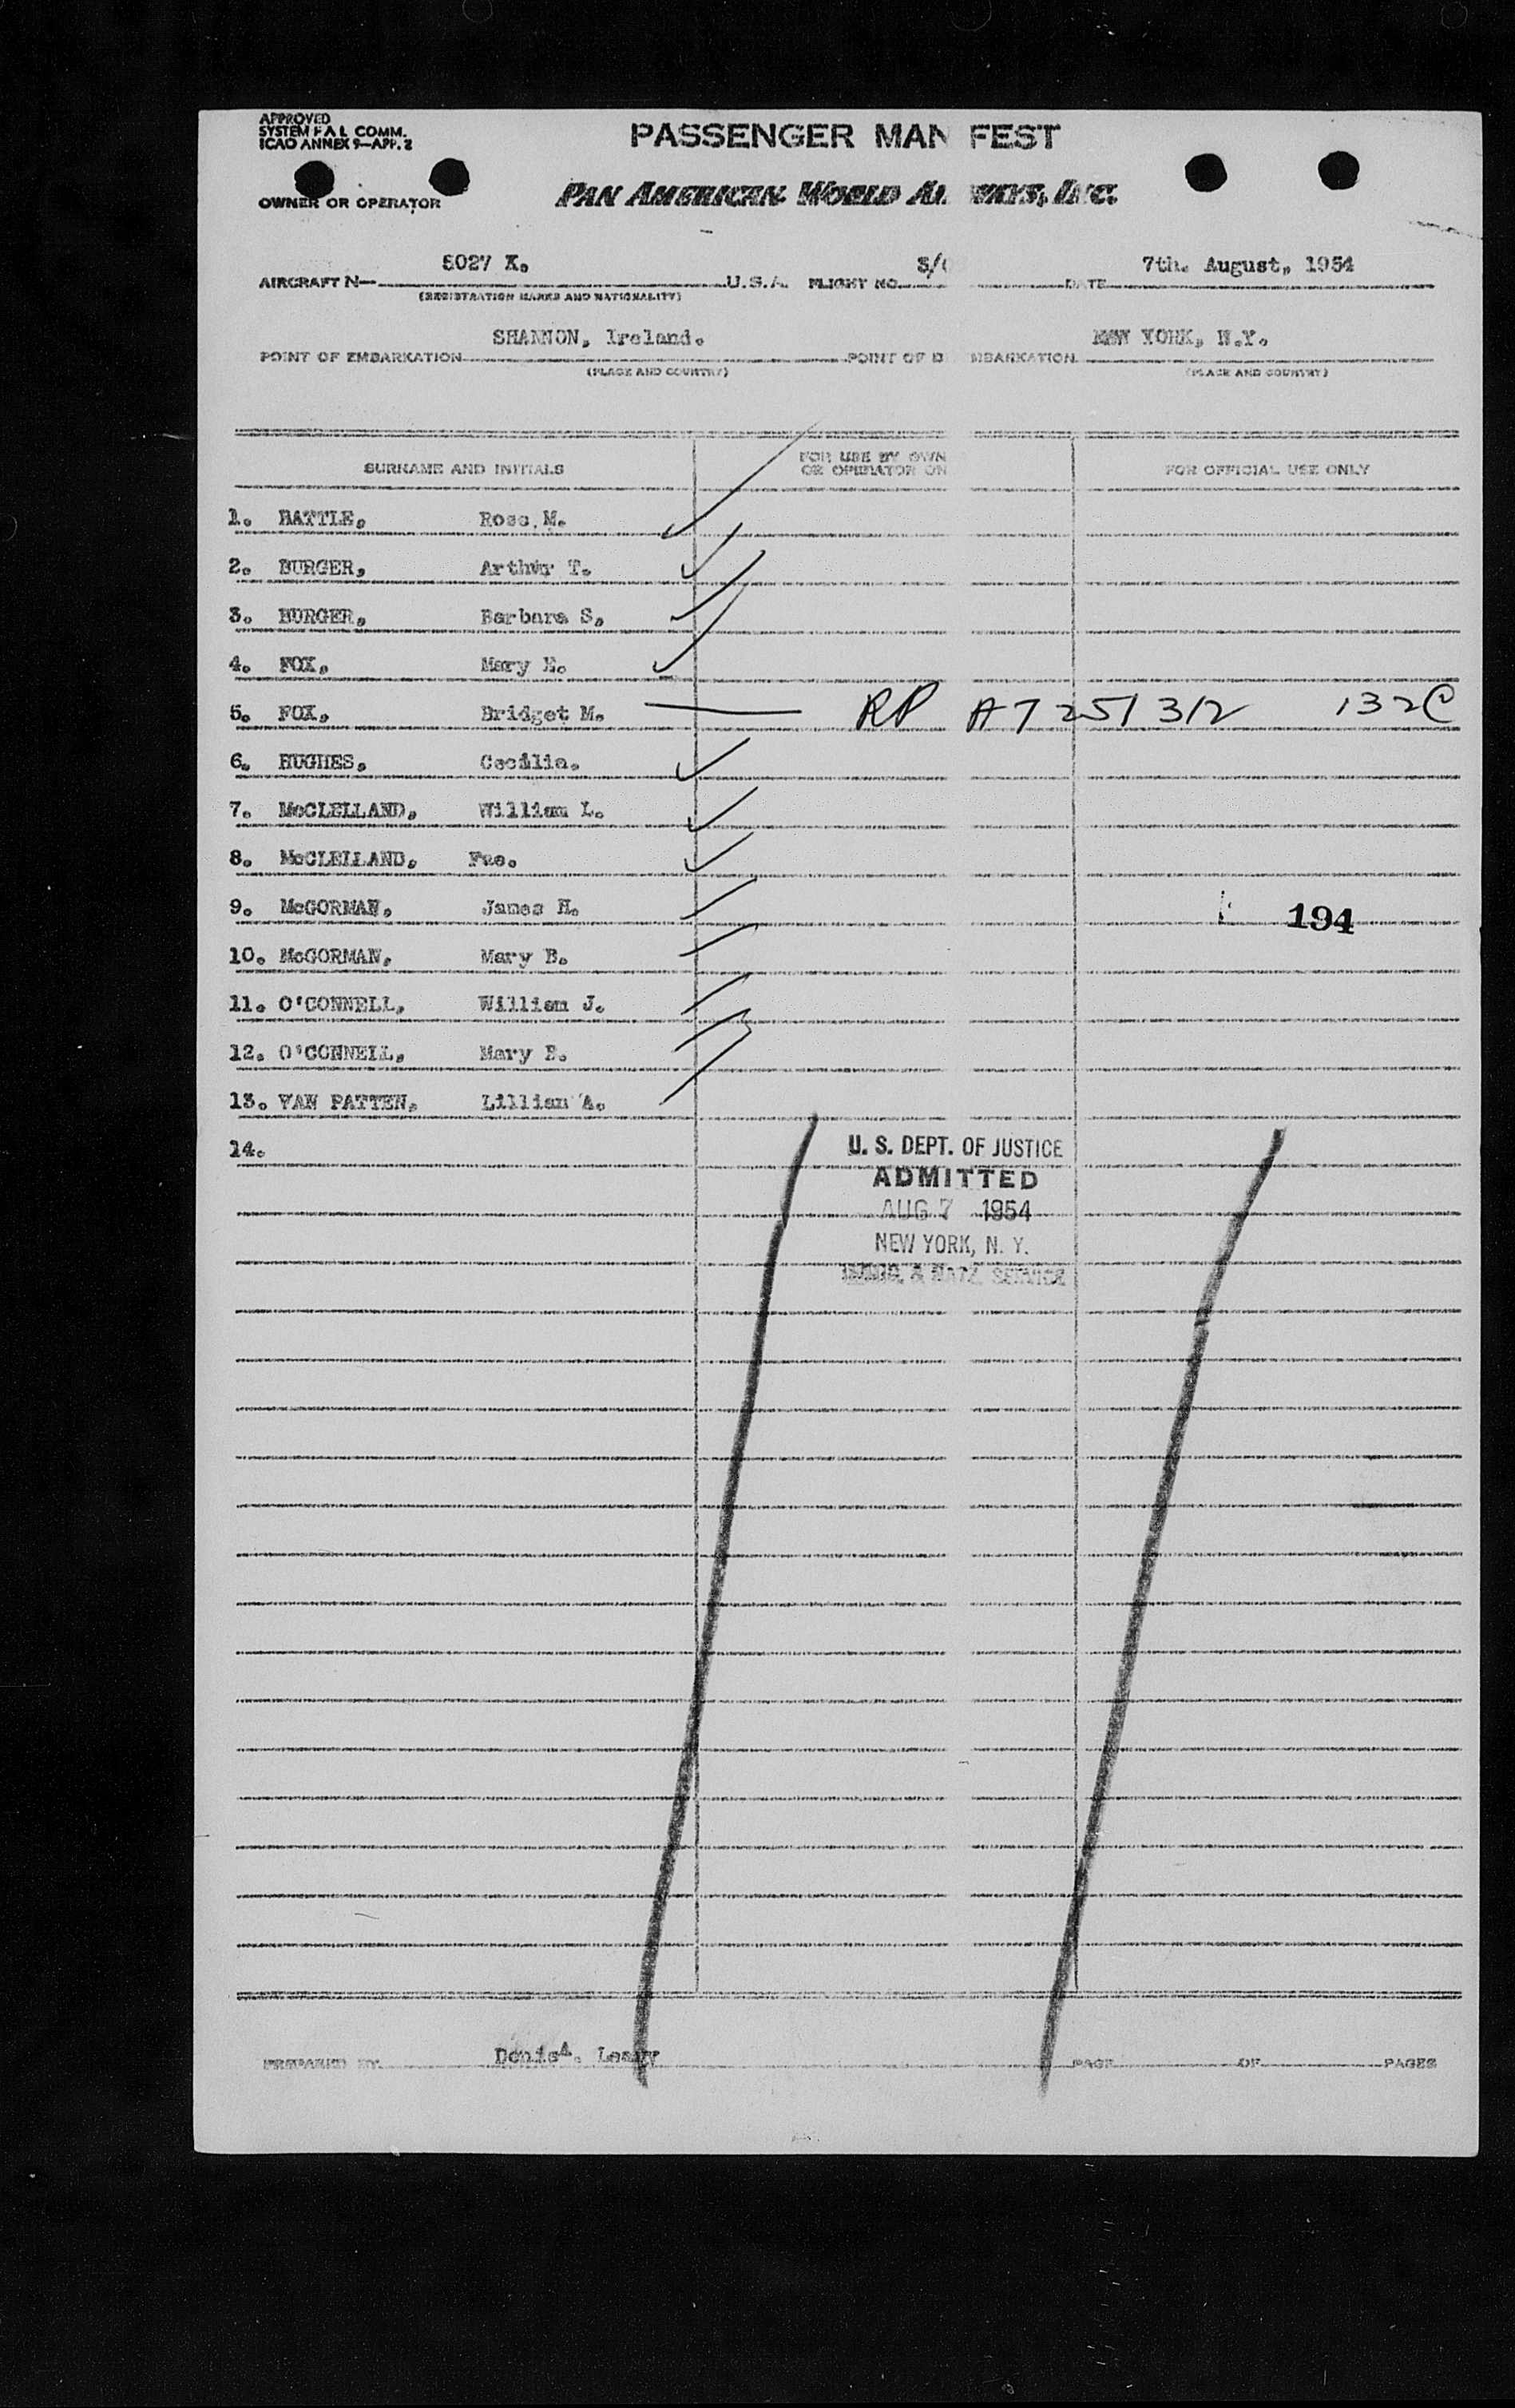 APPROVED
SYSTEM F A L COMM.
ICAO ANNEX 9—APP. 2
PASSENGER MAN FEST
OWNER OR OPERATOR
PAN AMERICAN WORLD AI WAYS, INC.
AIRCRAFT N— 5027 X. U.S.A. FLIGHT NO. DATE 7th. August, 1954
(REGISTRATION MARKS AND NATIONALITY)
POINT OF EMBARKATION SHANNON, Ireland. POINT OF D MBARKATION NEW YORK, N.Y.
(PLACE AND COUNTRY) (PLACE AND COUNTRY)
SURNAME AND INITIALS
FOR USE BY OWN
OR OPERATOR ON
FOR OFFICIAL USE ONLY
1. BATTLE, Rose M.
2. BURGER, Arthur T.
3. BURGER, Barbara S.
4. FOX, Mary E.
5. FOX, Bridget M. — RP A7 251 312 132C
6. HUGHES, Cecilia.
7. McCLELLAND, William L.
8. McCLELLAND, Fae.
9. McGORMAN, James H. 194
10. McGORMAN, Mary B.
11. O'CONNELL, William J.
12. O'CONNELL, Mary E.
13. VAN PATTEN, Lillian A.
14.
U. S. DEPT. OF JUSTICE
ADMITTED
AUG 7 1954
NEW YORK, N. Y.
IMMIG. & NATZ. SERVICE
PREPARED BY Denis A. Leahy PAGE OF PAGES